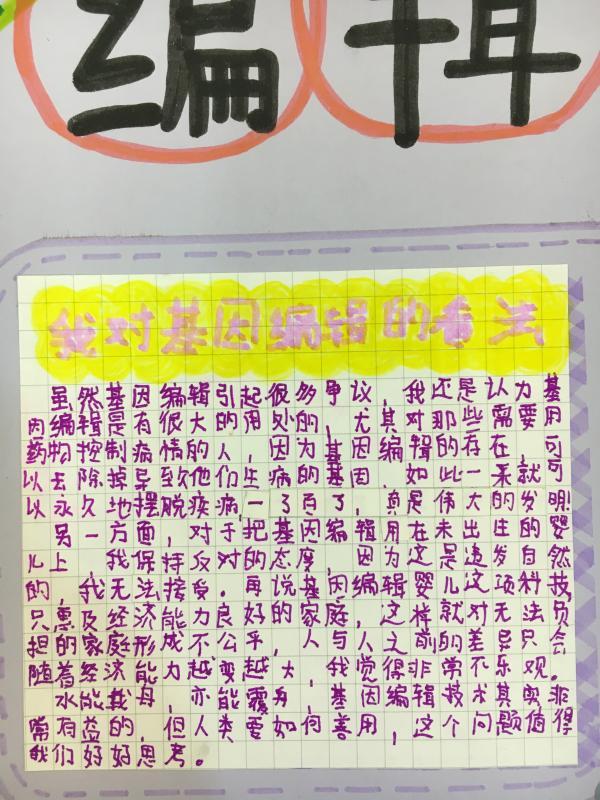 编辑
我对基因编辑的看法
虽然基因编辑引起很多争议,我还是认为基
因编辑是有很大的用处的,尤其对那些需要用
药物控制病情的人,因为基因编辑的存在,可
以去除掉导致他们生病的基因,如此一来就可
以永久地摆脱疾病,一了百了,真是伟大的发明!
另一方面,对于把基因编辑用在未出生的婴
儿上,我保持反对的态度,因为这是违发自然
的,我无法接受。再说基因编辑婴儿这项科技
只惠及经济能力良好的家庭,这样就对无法负
担的家庭形成不公平,人与人之前的差异只会
随着经济能力越变越大,我觉得非常不乐观。
水能载舟,亦能覆舟,基因编辑技术其实非
常有益的,但人类要如何善用,这个问题值得
我们好好思考。